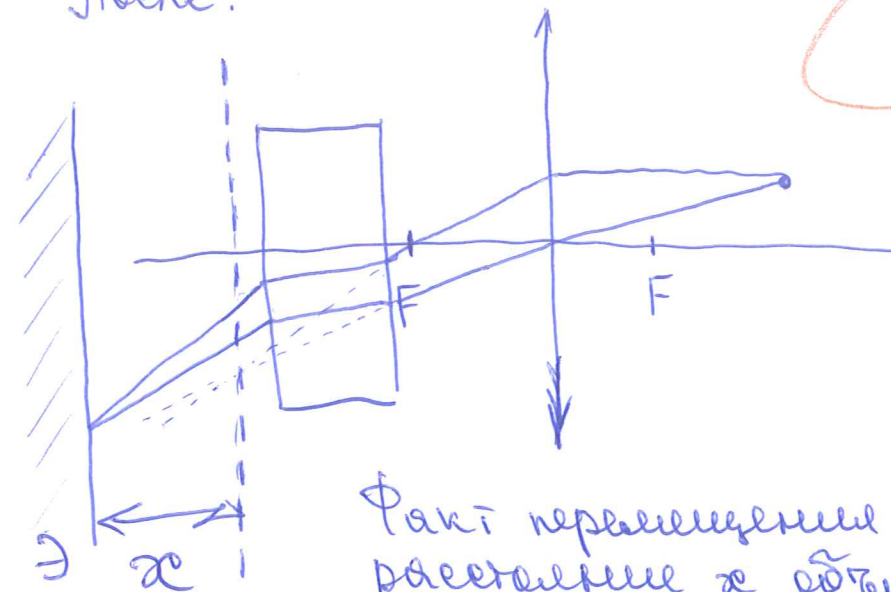 F
F
Э
x
Факт перемещения
расстояние x объ